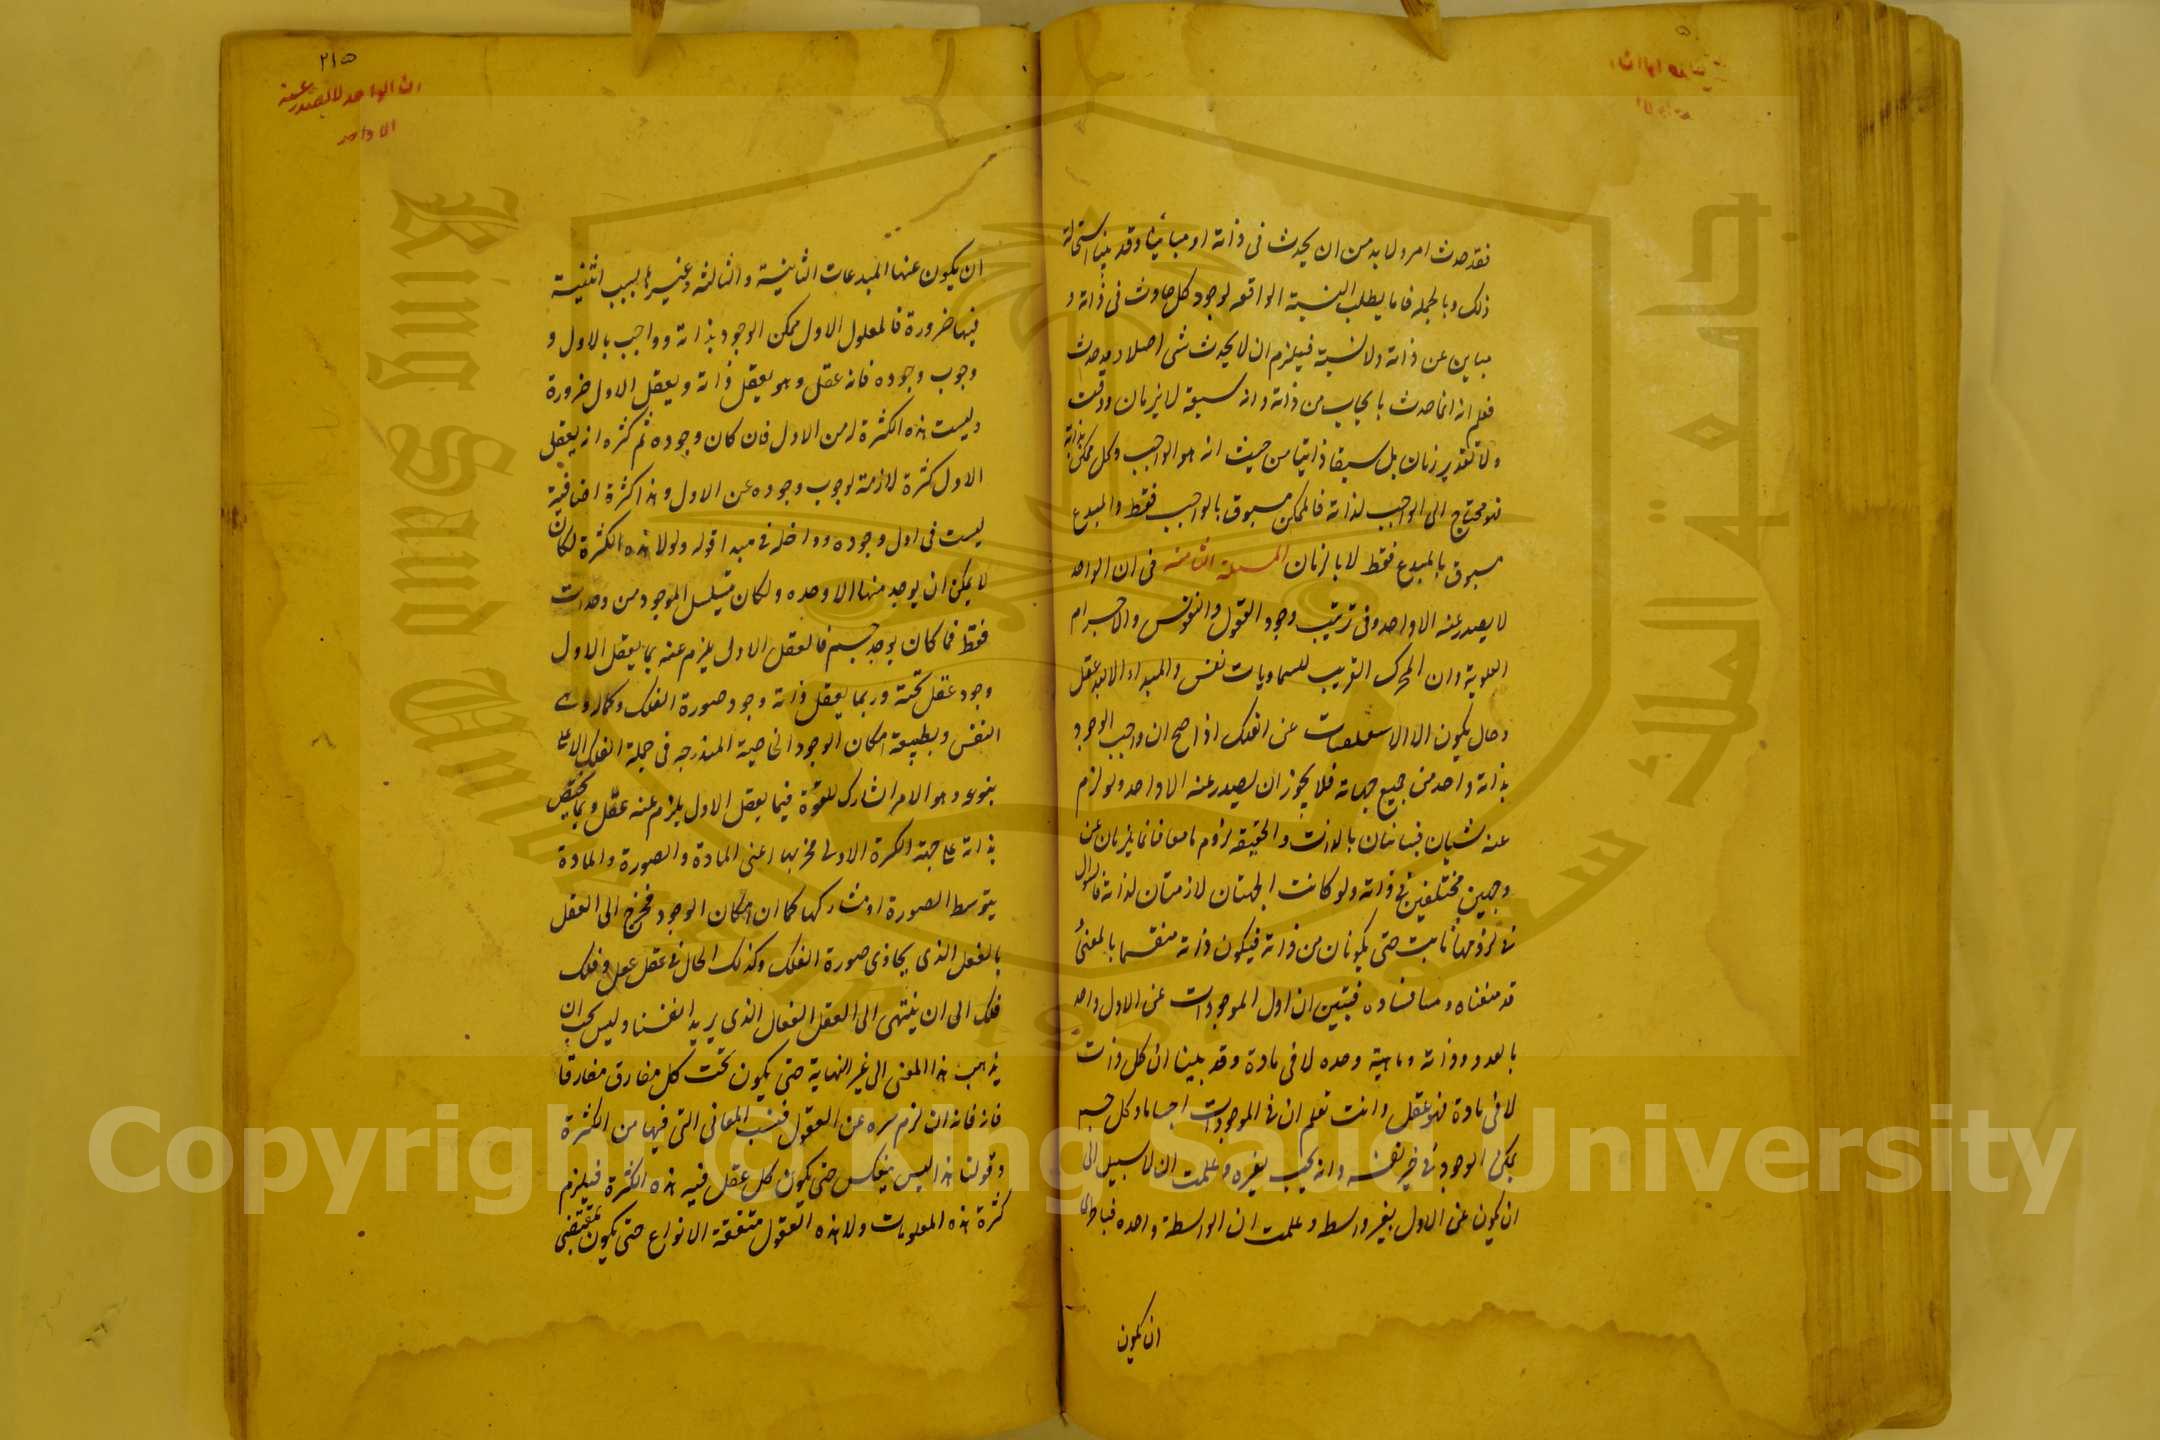 فقد حدث امر ولا بد من ان يحدث فى ذاته او مباينا وقد بينا استحالة
ذلك وبالجملة فاما يطلب النسبة الواقعه لوجود كل حادث فى ذاته و
مباين عن ذاته ولا نسبة فيلزم ان لا يحدث شى اصلا وقد حدث
فعلم انه انما حدث بايجاب من ذاته وانه سبقه لا بزمان ووقت
ولا تقدير زمان بل سبقا ذاتيا من حيث انه هو الواجب وكل ممكن بذاته
فهو محتاج الى الواجب لذاته فالممكن مسبوق بالواجب فقط والمبدع
مسبوق بالمبدع فقط لا بالزمان المسئلة الثامنه فى ان الواحد
لا يصدر عنه الا واحد وفى ترتيب وجود العقول والنفوس والاجرام
العلوية وان المحرك القريب للسماويات نفس والمبداء الابعد عقل
وحال تكون الاستقصات عن الفلك اذا صح ان واجب الوجود
بذاته واحد من جميع جهاته فلا يجوز ان يصدر عنه الا واحد ولو لزم
عنه شيان متباينان بالذات والحقيقه لزوما معا فانما يلزمان عن
وجهين مختلفين فى ذاته ولو كانت الجهتان لازمتان لذاته فالسوال
فى لزومهما ثابت حتى يكونان من ذاته فيكون ذاته منقسما بالمعنى
قد منعناه وبينا فساده فتبين ان اول الموجودات عن الاول واحد
بالعدد وذاته وماهيته وحده لا فى مادة وقد بينا ان كل ذات
لا فى مادة فهو عقل وانت تعلم ان فى الموجودات اجساما وكل جسم
ممكن الوجود فى حيز نفسه وانه يجب بغيره وعلمت ان لا سبيل الى
ان يكون عن الاول بغير واسطه وعلمت ان الواسطة واحده فبالحرى
ان يكون
٢١٥
ان الواحد لا يصدر عنه
الا واحد
ان يكون عنها المبدعات الثانية والثالثه وغيرها بسبب اثنينية
فيها ضرورة فالمعلول الاول ممكن الوجود بذاته وواجب بالاول و
وجوب وجوده فانه عقل وهو يعقل ذاته ويعقل الاول ضرورة
وليست هذه الكثرة له من الاول فان كان وجوده ثم كثره انه يعقل
الاول كثرة لازمة لوجوب وجوده عن الاول وهذا كثرة اضافية
ليست فى اول وجوده وداخله فى مبدا قوله ولولا هذه الكثرة لكان
لا يمكن ان يوجد منها الا وحده ولكان يتسلسل الوجود من وحدات
فقط فما كان يوجد جسم فالعقل الاول يلزم عنه بما يعقل الاول
وجود عقل تحته وربما يعقل ذاته وجود صورة الفلك وكماله وهى
النفس وبطبيعة امكان الوجود الخاصية المندرجه فى جملة الفلك الاعلى
بنوعه وهو الامر المشارك للقوة فيما يعقل الاول يلزم عنه عقل وبما يختص
بذاته على جهته الكثرة الاولى بجزئيها اعنى المادة والصورة والمادة
بتوسط الصورة او مشاركها كما ان امكان الوجود فخرج الى العقل
بالفعل الذى يحاذى صورة الفلك وكذلك الحال فى عقل عقل وفلك
فلك الى ان ينتهى الى العقل الفعال الذى يريد انفسنا وليس يجب ان
يذهب هذا المعنى الى غير النهاية حتى يكون تحت كل مفارق مفارقا
فانه ان لزم كثره عن العقول فنسب المعانى التى فيها من الكثرة
وقولنا هذا ليس ينعكس حتى يكون كل عقل فيه هذه الكثرة فيلزم
كثرة هذه المعلومات ولا هذه العقول متفقة الانواع حتى يكون بمقتضى
Copyright © King Saud University
King Saud University
جامعة الملك سعود
1957